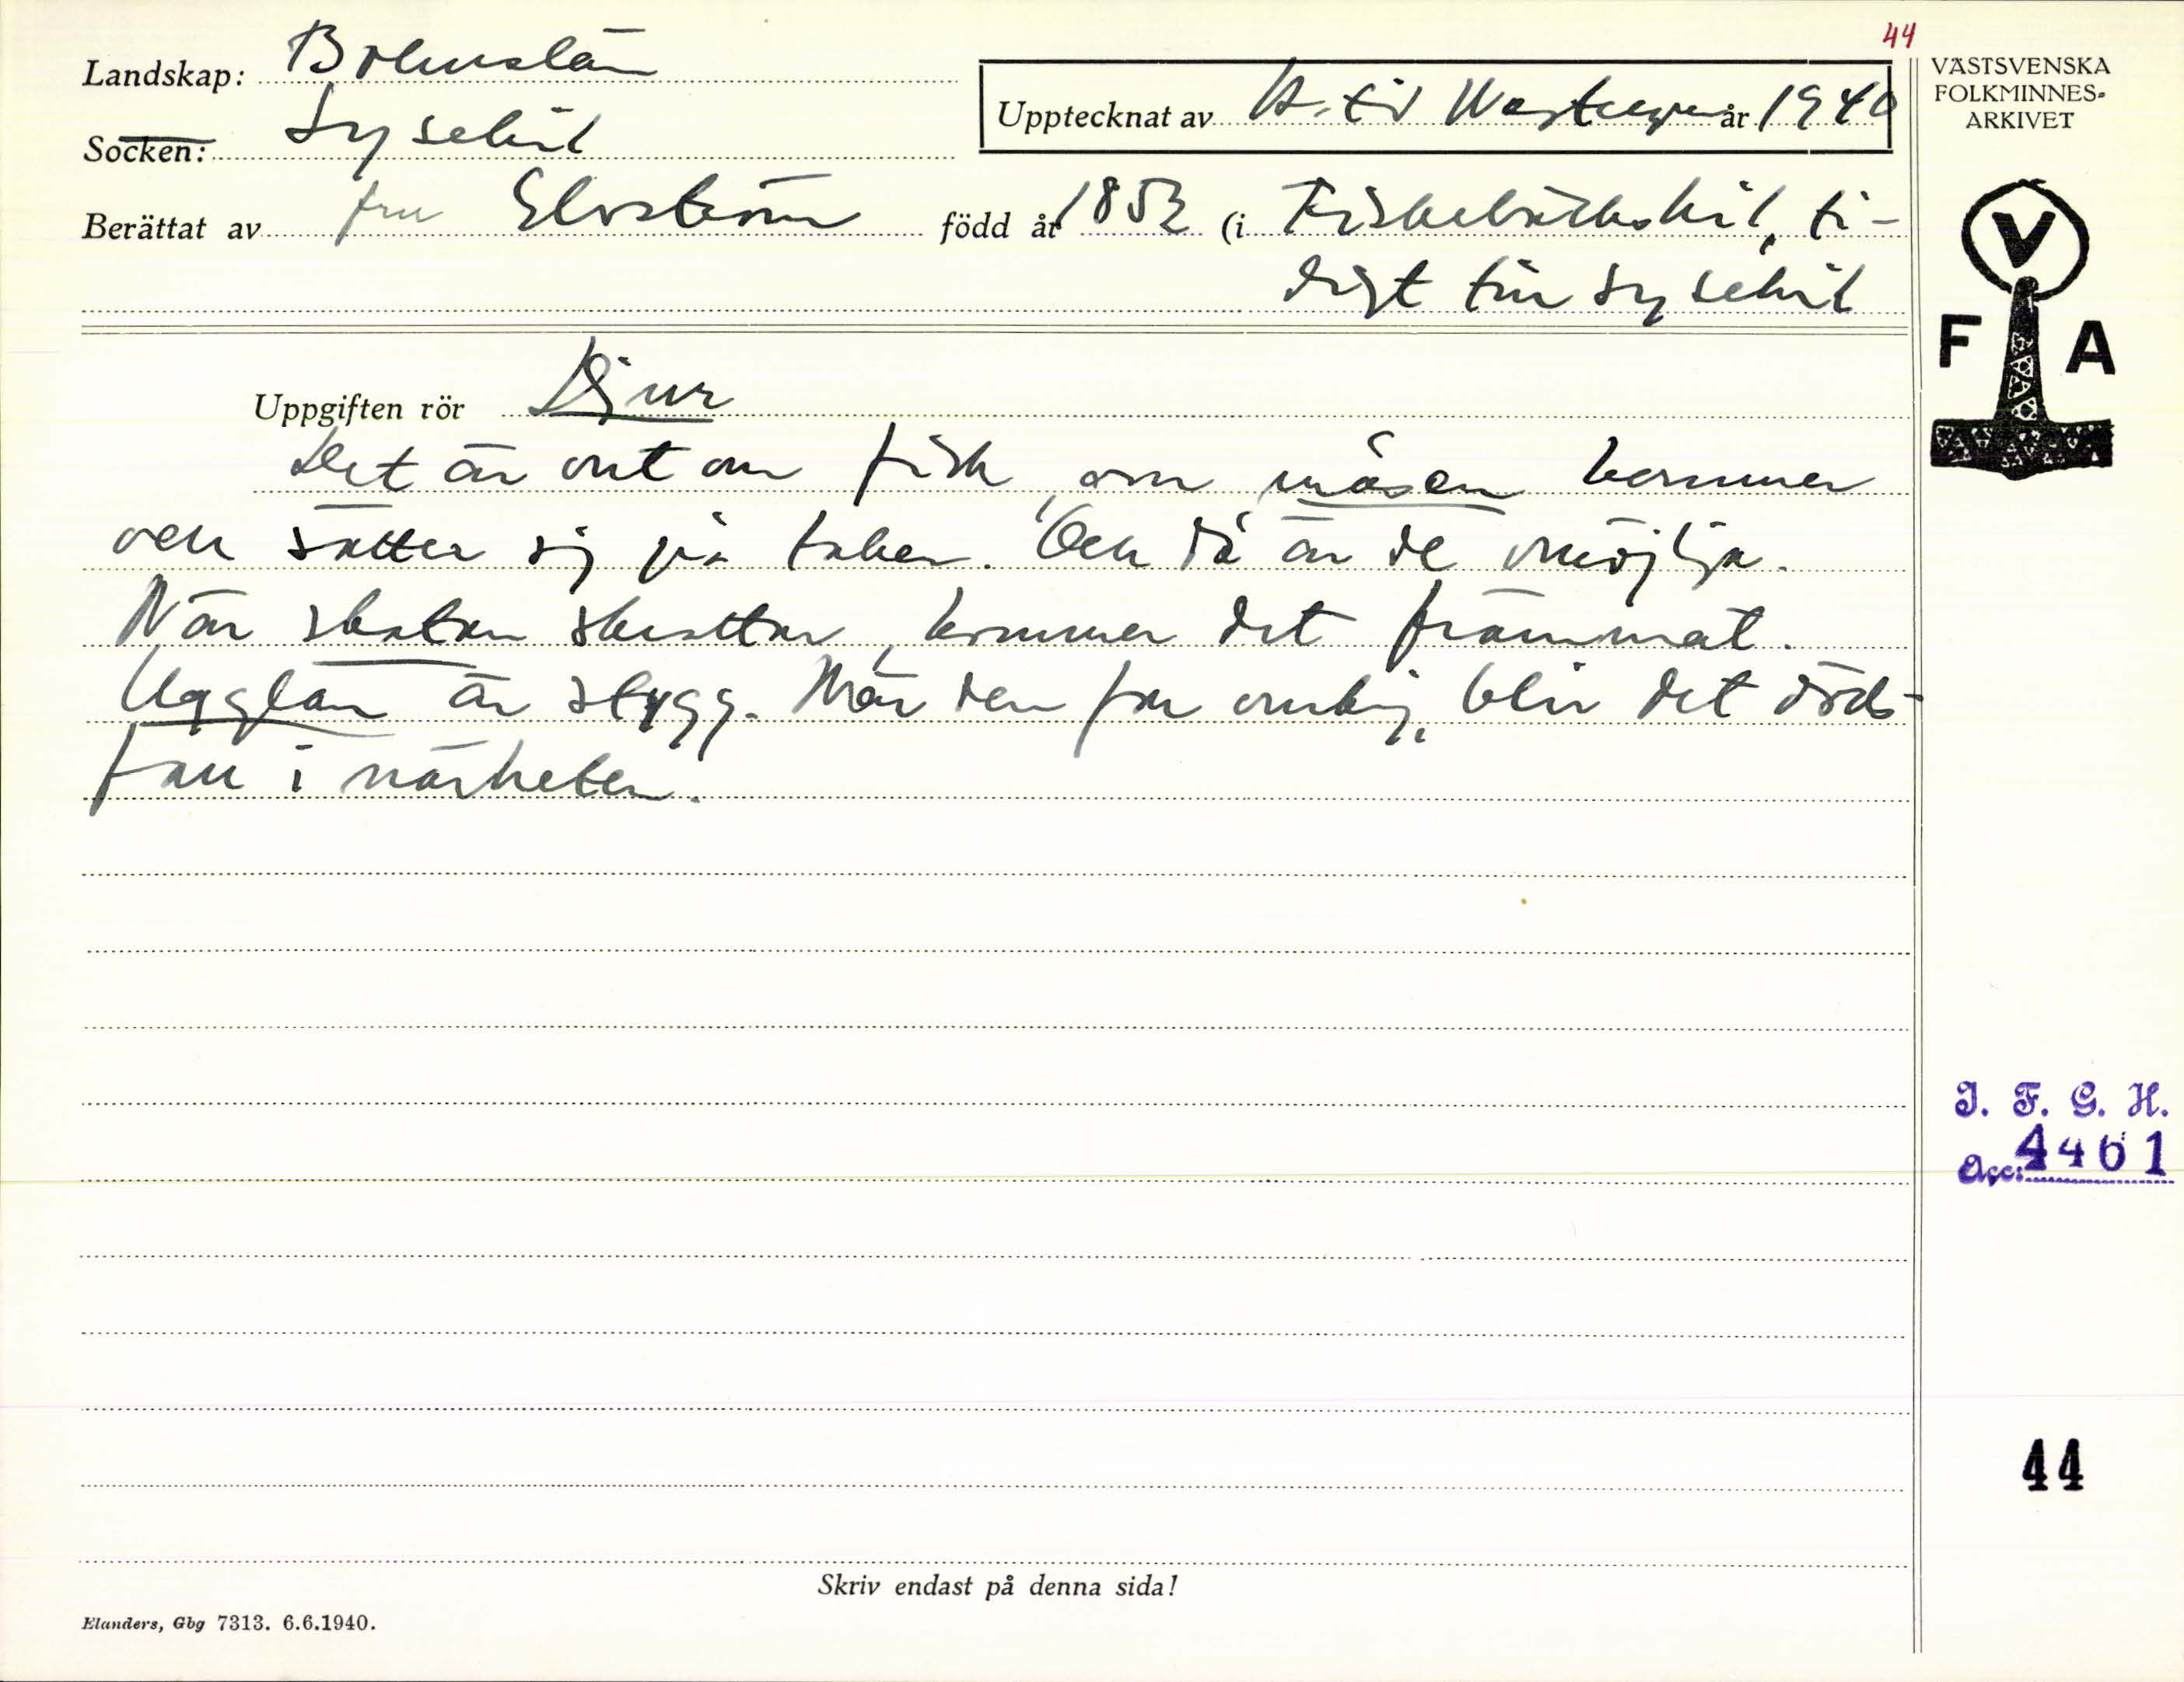 44
Landskap: Bohuslän
Socken: Lysekil
Upptecknat av Westergren år 1940
Berättat av fru Elvström född år 1852 (i Fiskebäckskil, ti-
digt till Lysekil
VÄSTSVENSKA
FOLKMINNES-
ARKIVET
V
F A
Uppgiften rör Djur
Det är ont om fisk, om måsen kommer
och sätter sig på taken. Och då är de omöjliga.
När skatan skrattar, kommer det främmat.
Ugglan är stygg. När den far omkring, blir det döds-
fall i närheten.
I. F. G. H.
Acc: 4461
44
Skriv endast på denna sida!
Elanders, Gbg 7313. 6.6.1940.